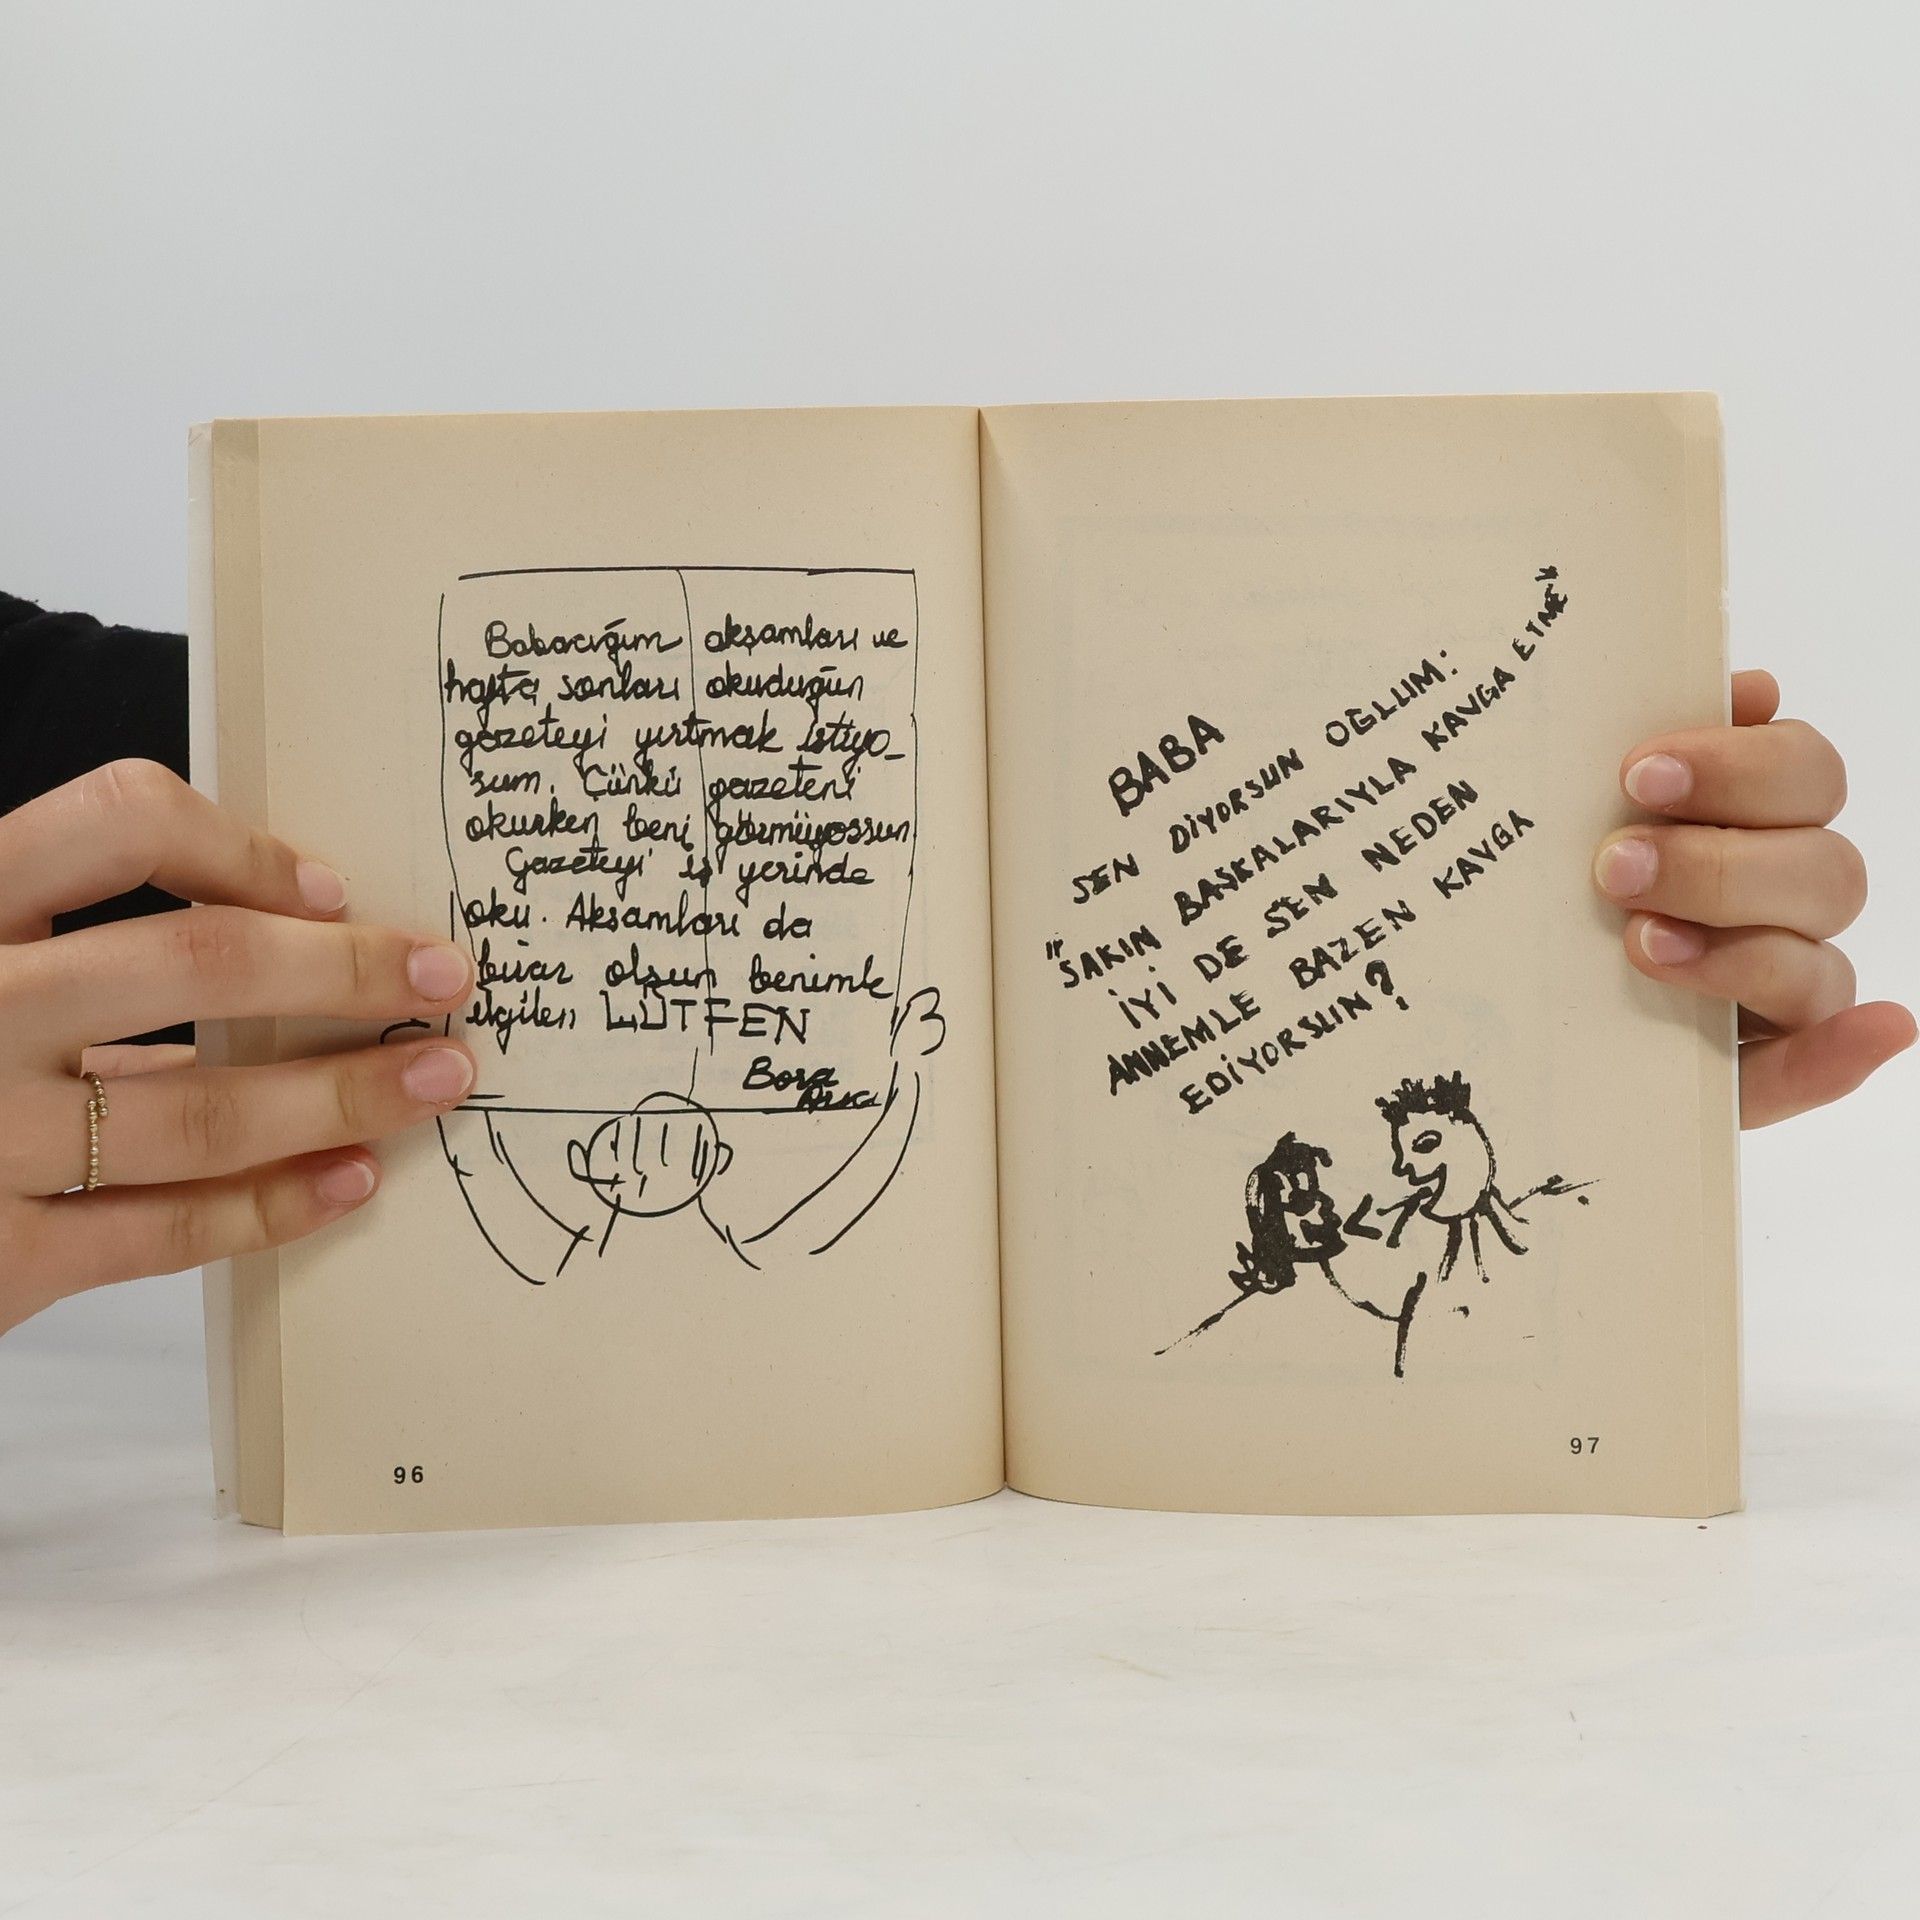 Babacığım akşamları ve
hafta sonları okuduğun
gazeteyi yırtmak istiyo_
sum. Çünkü gazeteni
okurken beni görmüyossun
Gazeteyi iş yerinde
oku. Akşamları da
biraz olsun benimle
ilgilen LÜTFEN
Bora
96
BABA
SEN DİYORSUN OĞLUM:
"SAKIN BAŞKALARIYLA KAVGA ETME"
İYİ DE SEN NEDEN
ANNEMLE BAZEN KAVGA
EDİYORSUN?
97